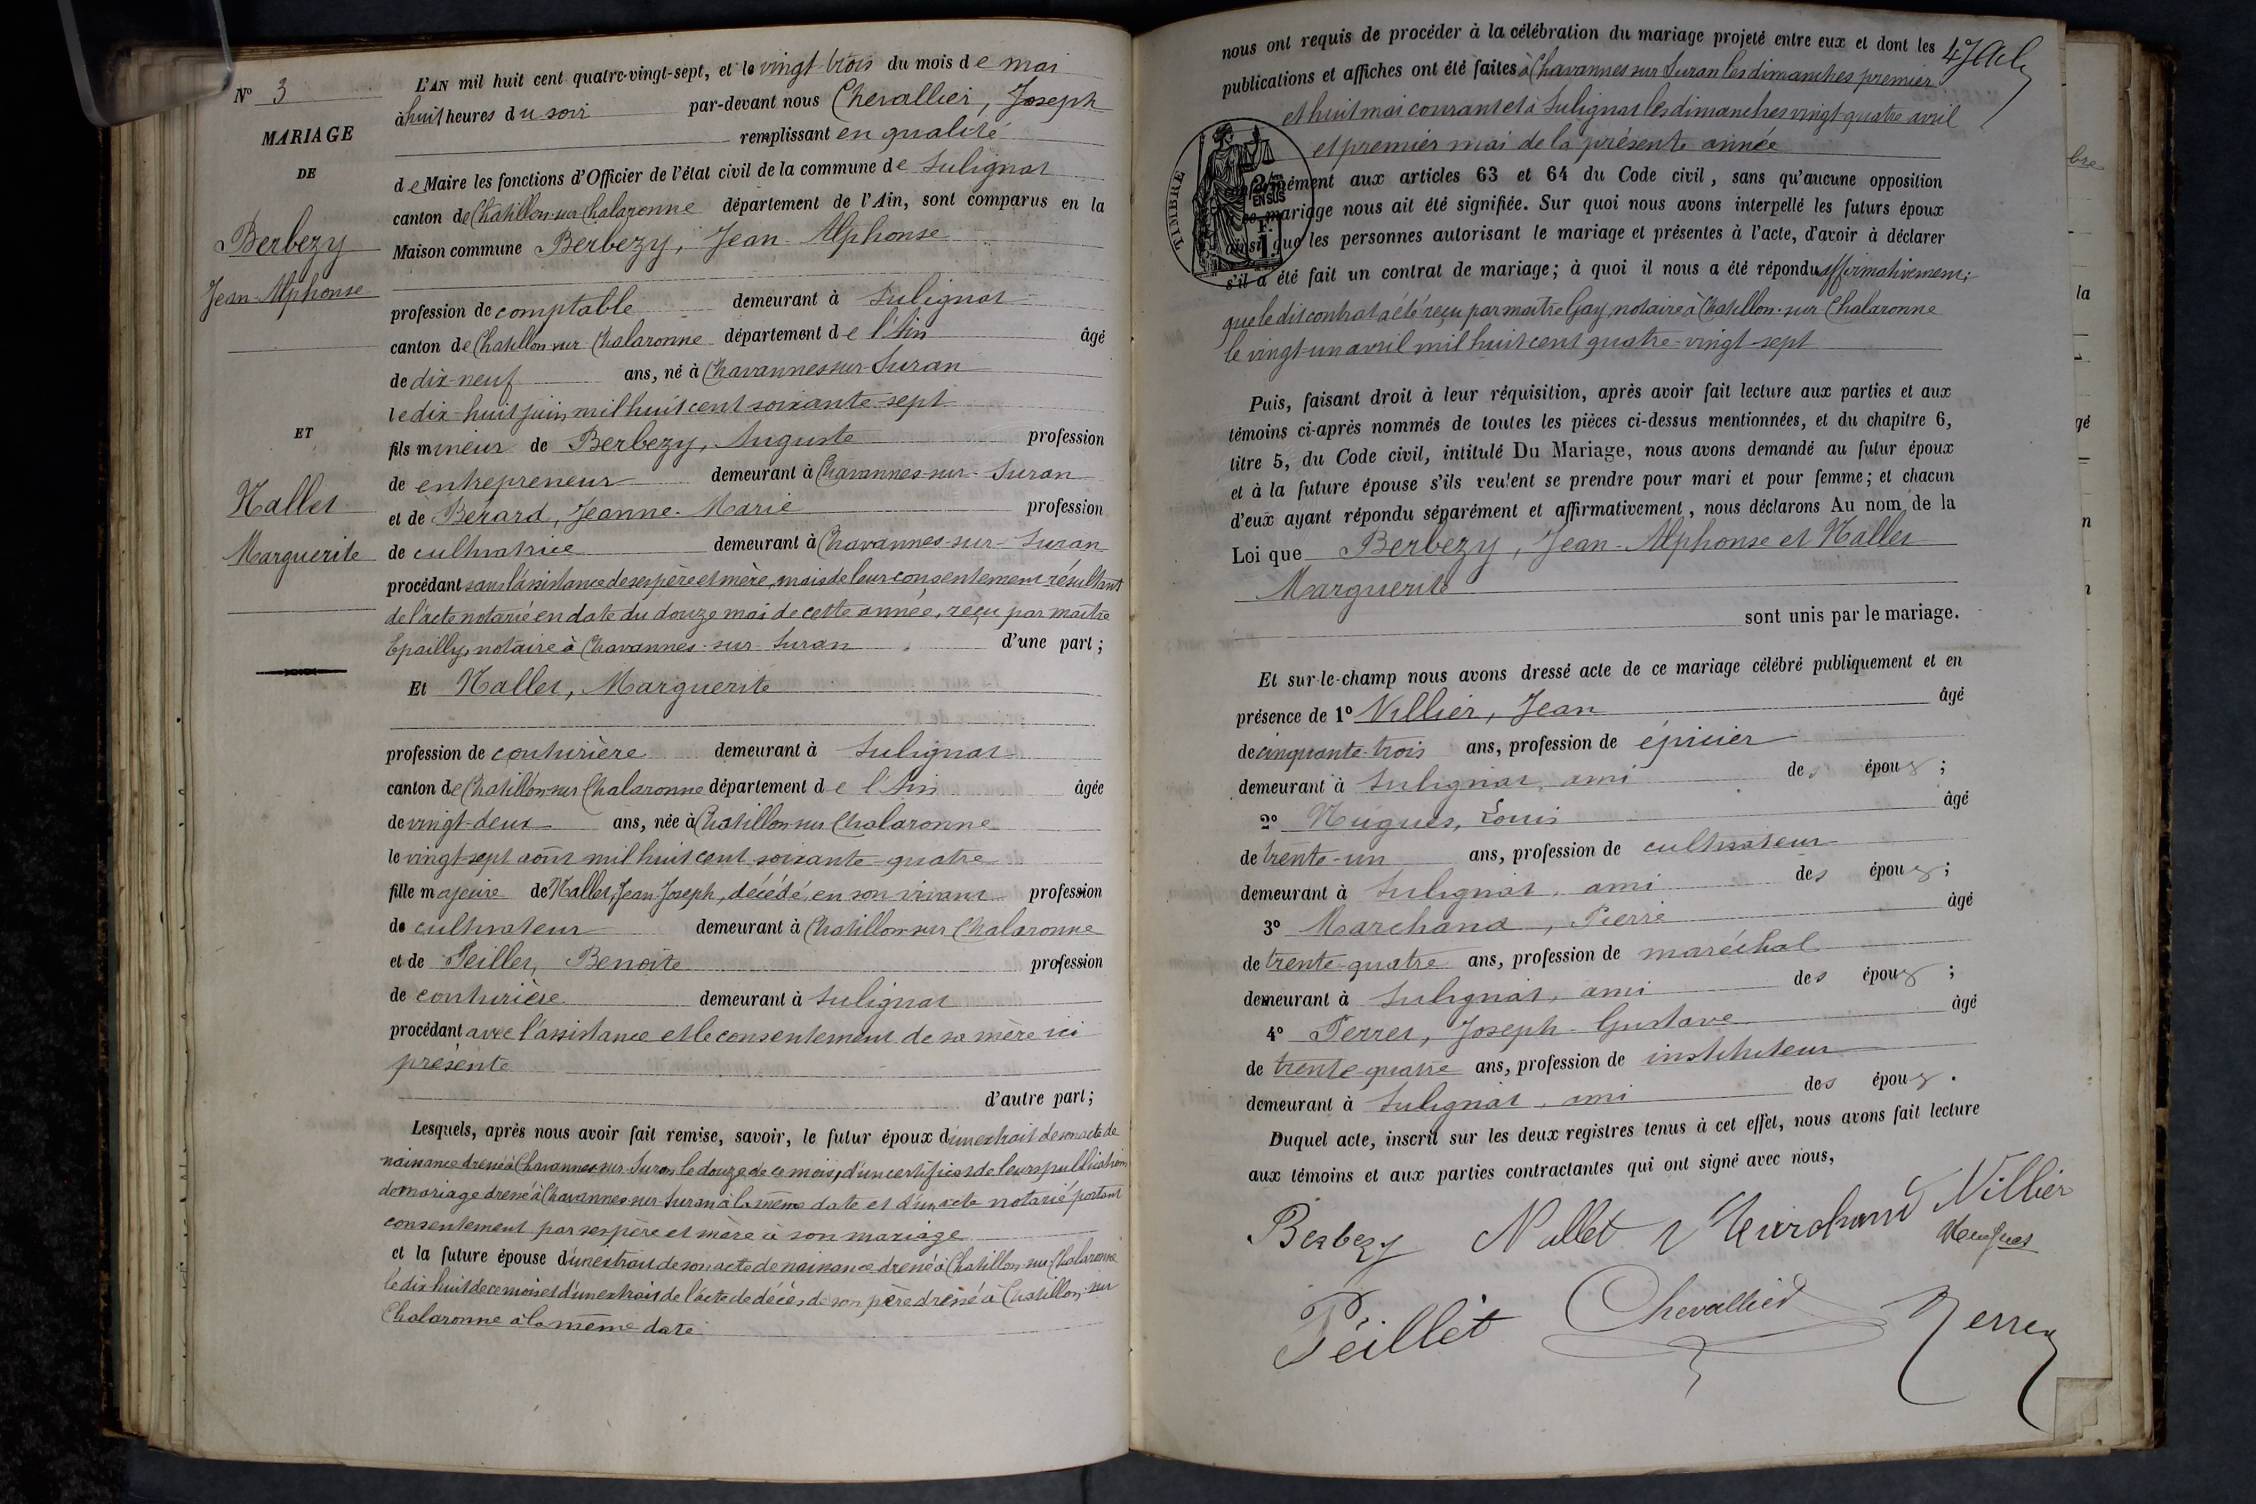 N° 3
MARIAGE
DE
Berbezy
Jean-Alphonse
ET
Nallet
Marguerite
L'AN mil huit cent quatre-vingt-sept, et le vingt-trois du mois de mai
à huit heures du soir par-devant nous Chevallier, Joseph
remplissant en qualité
de Maire les fonctions d'Officier de l'état civil de la commune de Sulignat
canton de Chatillon-sur-Chalaronne département de l'Ain, sont comparus en la
Maison commune Berbezy, Jean-Alphonse
profession de comptable demeurant à Sulignat
canton de Chatillon-sur-Chalaronne département de l'Ain âgé
de dix-neuf ans, né à Chavannes-sur-Suran
le dix-huit juin mil huit cent soixante-sept
fils mineur de Berbezy, Auguste profession
de entrepreneur demeurant à Chavannes-sur-Suran
et de Bérard, Jeanne-Marie profession
de cultivatrice demeurant à Chavannes-sur-Suran
procédant sans l'assistance de ses père et mère, mais de leur consentement résultant
de l'acte notarié en date du douze mai de cette année, reçu par maître
Epailly, notaire à Chavannes-sur-Suran d'une part;
Et Nallet, Marguerite
profession de couturière demeurant à Sulignat
canton de Chatillon-sur-Chalaronne département de l'Ain âgée
de vingt-deux ans, née à Chatillon-sur-Chalaronne
le vingt-sept août mil huit cent soixante-quatre
fille majeure de Nallet, Jean-Joseph, décédé, en son vivant profession
de cultivateur demeurant à Chatillon-sur-Chalaronne
et de Peillet, Benoîte profession
de couturière demeurant à Sulignat
procédant avec l'assistance et le consentement de sa mère ici
présente
d'autre part;
Lesquels, après nous avoir fait remise, savoir, le futur époux d'un extrait de son acte de
naissance dressé à Chavannes-sur-Suran le douze de ce mois, d'un certificat de leurs publications
de mariage dressé à Chavannes-sur-Suran à la même date et d'un acte notarié portant
consentement par ses père et mère à son mariage
et la future épouse d'un extrait de son acte de naissance dressé à Chatillon-sur-Chalaronne
le dix huit de ce mois et d'un extrait de l'acte de décès de son père dressé à Chatillon-sur
Chalaronne à la même date
nous ont requis de procéder à la célébration du mariage projeté entre eux et dont les
publications et affiches ont été faites à Chavannes sur Suran les dimanches premier
et huit mai courant et à Sulignat les dimanches vingt-quatre avril
et premier mai de la présente année
TIMBRE
EN SUS
conformément aux articles 63 et 64 du Code civil, sans qu'aucune opposition
ce mariage nous ait été signifiée. Sur quoi nous avons interpellé les futurs époux
ainsi que les personnes autorisant le mariage et présentes à l'acte, d'avoir à déclarer
s'il a été fait un contrat de mariage; à quoi il nous a été répondu affirmativement;
que le dit contrat a été reçu par maître Gay, notaire à Chatillon-sur-Chalaronne
le vingt-un avril mil huit cent quatre-vingt-sept
Puis, faisant droit à leur réquisition, après avoir fait lecture aux parties et aux
témoins ci-après nommés de toutes les pièces ci-dessus mentionnées, et du chapitre 6,
titre 5, du Code civil, intitulé Du Mariage, nous avons demandé au futur époux
et à la future épouse s'ils veulent se prendre pour mari et pour femme; et chacun
d'eux ayant répondu séparément et affirmativement, nous déclarons Au nom de la
Loi que Berbezy, Jean-Alphonse et Nallet
Marguerite
sont unis par le mariage.
Et sur-le-champ nous avons dressé acte de ce mariage célébré publiquement et en
présence de 1° Villier, Jean âgé
de cinquante-trois ans, profession de épicier
demeurant à Sulignat, ami des époux;
2° Hugues, Louis âgé
de trente-un ans, profession de cultivateur
demeurant à Sulignat, ami des époux;
3° Marchand, Pierre âgé
de trente-quatre ans, profession de maréchal
demeurant à Sulignat, ami des époux;
4° Perret, Joseph-Gustave âgé
de trente-quatre ans, profession de instituteur
demeurant à Sulignat, ami des époux.
Duquel acte, inscrit sur les deux registres tenus à cet effet, nous avons fait lecture
aux témoins et aux parties contractantes qui ont signé avec nous,
Berbezy Nallet Marchand Villier
Hugues
Peillet Chevallier Perret
bre
la
gé
n